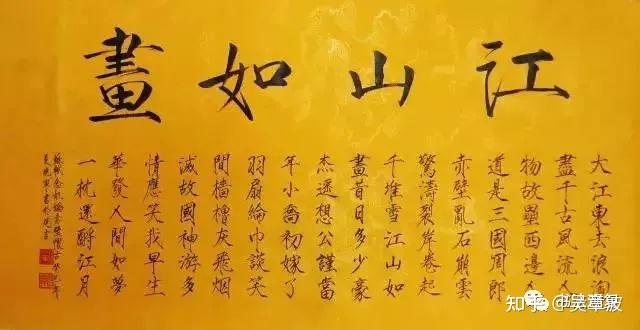 江山如畫
大江東去浪淘
盡千古風流人
物故壘西邊人
道是三國周郎
赤壁亂石崩雲
驚濤裂岸卷起
千堆雪江山如
畫昔日多少豪
杰遥想公謹當
年小喬初嫁了
羽扇綸巾談笑
間檣櫓灰飛烟
滅故國神游多
情應笑我早生
華發人間如夢
一枕還酹江月
蘇軾念奴嬌赤壁懷古
知乎